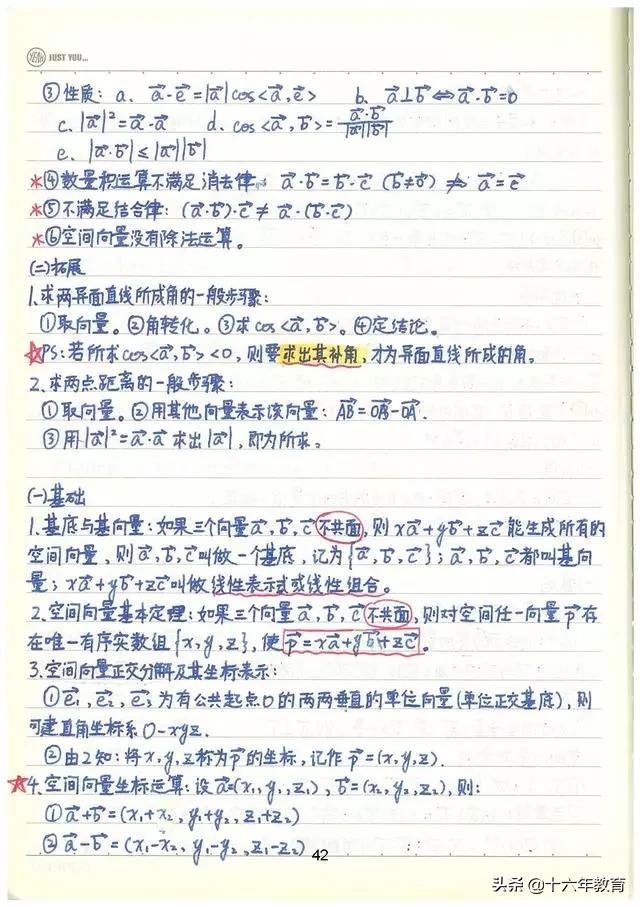 YEAH JUST YOU...
③性质: a. a⃗·e⃗=|a⃗|cos<a⃗,e⃗> b. a⃗⊥b⃗⇔a⃗·b⃗=0
c. |a⃗|²=a⃗·a⃗ d. cos<a⃗,b⃗>=a⃗·b⃗/|a⃗||b⃗|
e. |a⃗·b⃗|≤|a⃗||b⃗|
*④数量积运算不满足消去律: a⃗·b⃗=b⃗·c⃗ (b⃗≠0⃗) ⇏ a⃗=c⃗
*⑤不满足结合律: (a⃗·b⃗)·c⃗≠a⃗·(b⃗·c⃗)
*⑥空间向量没有除法运算。
(二)拓展
1.求两异面直线所成角的一般步骤:
①取向量。②角转化。③求cos<a⃗,b⃗>。④定结论。
☆PS:若所求cos<a⃗,b⃗><0,则要求出其补角,才为异面直线所成的角。
2.求两点距离的一般步骤:
①取向量。②用其他向量表示该向量: AB⃗=OB⃗-OA⃗.
③用|a⃗|²=a⃗·a⃗求出|a⃗|,即为所求。
(一)基础
1.基底与基向量:如果三个向量a⃗,b⃗,c⃗不共面,则xa⃗+yb⃗+zc⃗能生成所有的
空间向量,则a⃗,b⃗,c⃗叫做一个基底,记为{a⃗,b⃗,c⃗};a⃗,b⃗,c⃗都叫基向
量;xa⃗+yb⃗+zc⃗叫做线性表示式或线性组合。
2.空间向量基本定理:如果三个向量a⃗,b⃗,c⃗不共面,则对空间任一向量p⃗存
在唯一有序实数组{x,y,z},使p⃗=xa⃗+yb⃗+zc⃗。
3.空间向量正交分解及其坐标表示:
①e⃗₁,e⃗₂,e⃗₃为有公共起点O的两两垂直的单位向量(单位正交基底),则
可建直角坐标系O-xyz.
②由2知:将x,y,z称为p⃗的坐标,记作p⃗=(x,y,z).
☆4.空间向量坐标运算:设a⃗=(x₁,y₁,z₁),b⃗=(x₂,y₂,z₂),则:
①a⃗+b⃗=(x₁+x₂, y₁+y₂, z₁+z₂)
②a⃗-b⃗=(x₁-x₂, y₁-y₂, z₁-z₂)
42
头条@十六年教育